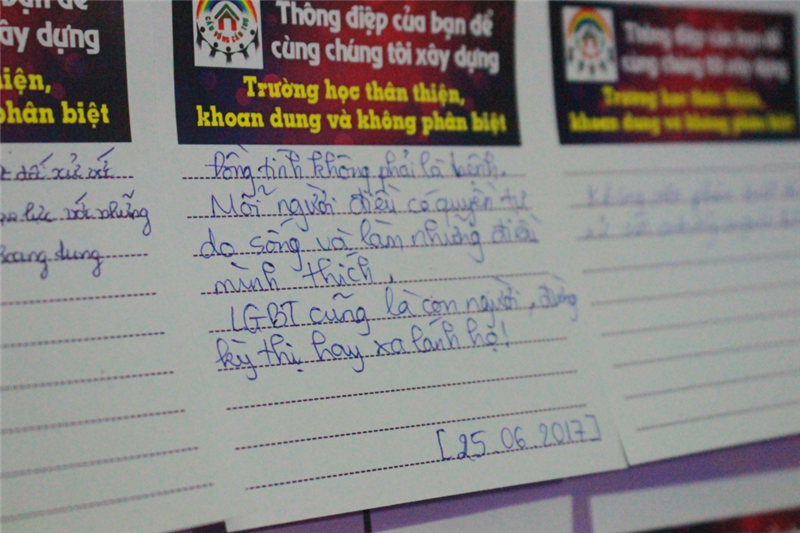 ạn để
ây dựng
iện,
phân biệt
đối xử với
lực với những
dung
CẦU VỒNG CẦN THƠ
Thông điệp của bạn để
cùng chúng tôi xây dựng
Trường học thân thiện,
khoan dung và không phân biệt
Đồng tính không phải là bệnh.
Mỗi người điều có quyền tự
do sống và làm những điều
mình thích.
LGBT cũng là con người, đừng
kỳ thị hay xa lánh họ!
[25.06.2017]
Thông điệp của bạn để
cùng chúng tôi xây dựng
Trường học thân thiện,
khoan dung và không phân biệt